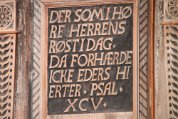 DER SOM I HØ
RE HERRENS
RØST I DAG.
DA FORHÆRDE
ICKE EDERS HI
ERTER. PSAL.
XCV.